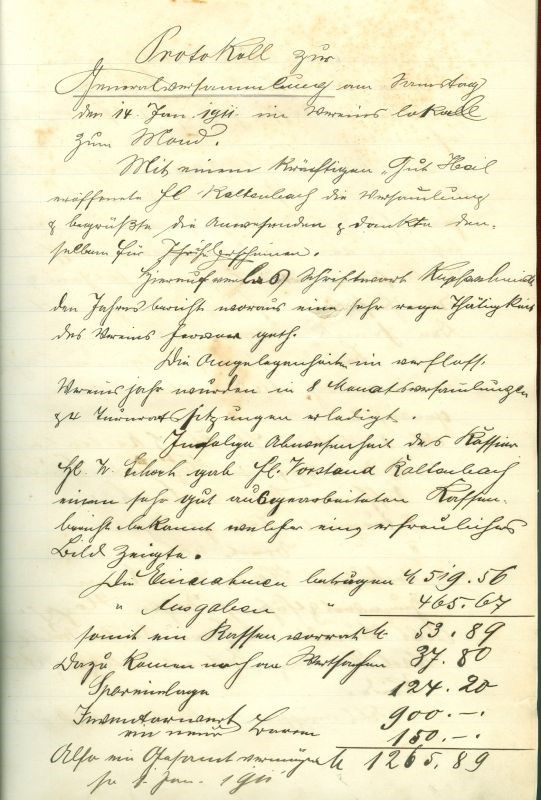 Protokoll zur
Generalversammlung am Samstag
den 14. Jan. 1911 im Vereinslokall
zum Mond.
Mit einem kräftigen „Gut Heil
eröffnete Hl. Kaltenbach die Versamlung
& begrüßte die Anwesenden & dankte den-
selben für Ihr Erscheinen.
Hierauf verlas Schriftwart
den Jahresbericht woraus eine sehr rege Thätigkeit
des Vereins hervor geth.
Die Angelegenheiten im verfloss.
Vereinsjahr wurden in 8 Monatsversamlungen
& 4 Turnratssitzungen erledigt.
Infolge Abwesenheit des Kassier
Hl. W. gab Hl. Vorstand Kaltenbach
einen sehr gut ausgearbeiteten Kassen-
bericht bekannt welcher ein erfreuliches
Bild zeigte.
Die Einnahmen betrugen M 519.56
" Ausgaben " 465.67
somit ein Kassenvorrat M. 53.89
Dazu kamen noch an Wertsachen 37.80
Spareinlage 124.20
Inventarwert 900.-.
ein neuer Barren 150.-.
Also ein Gesamtvermögen M 1265.89
Jan. 1911